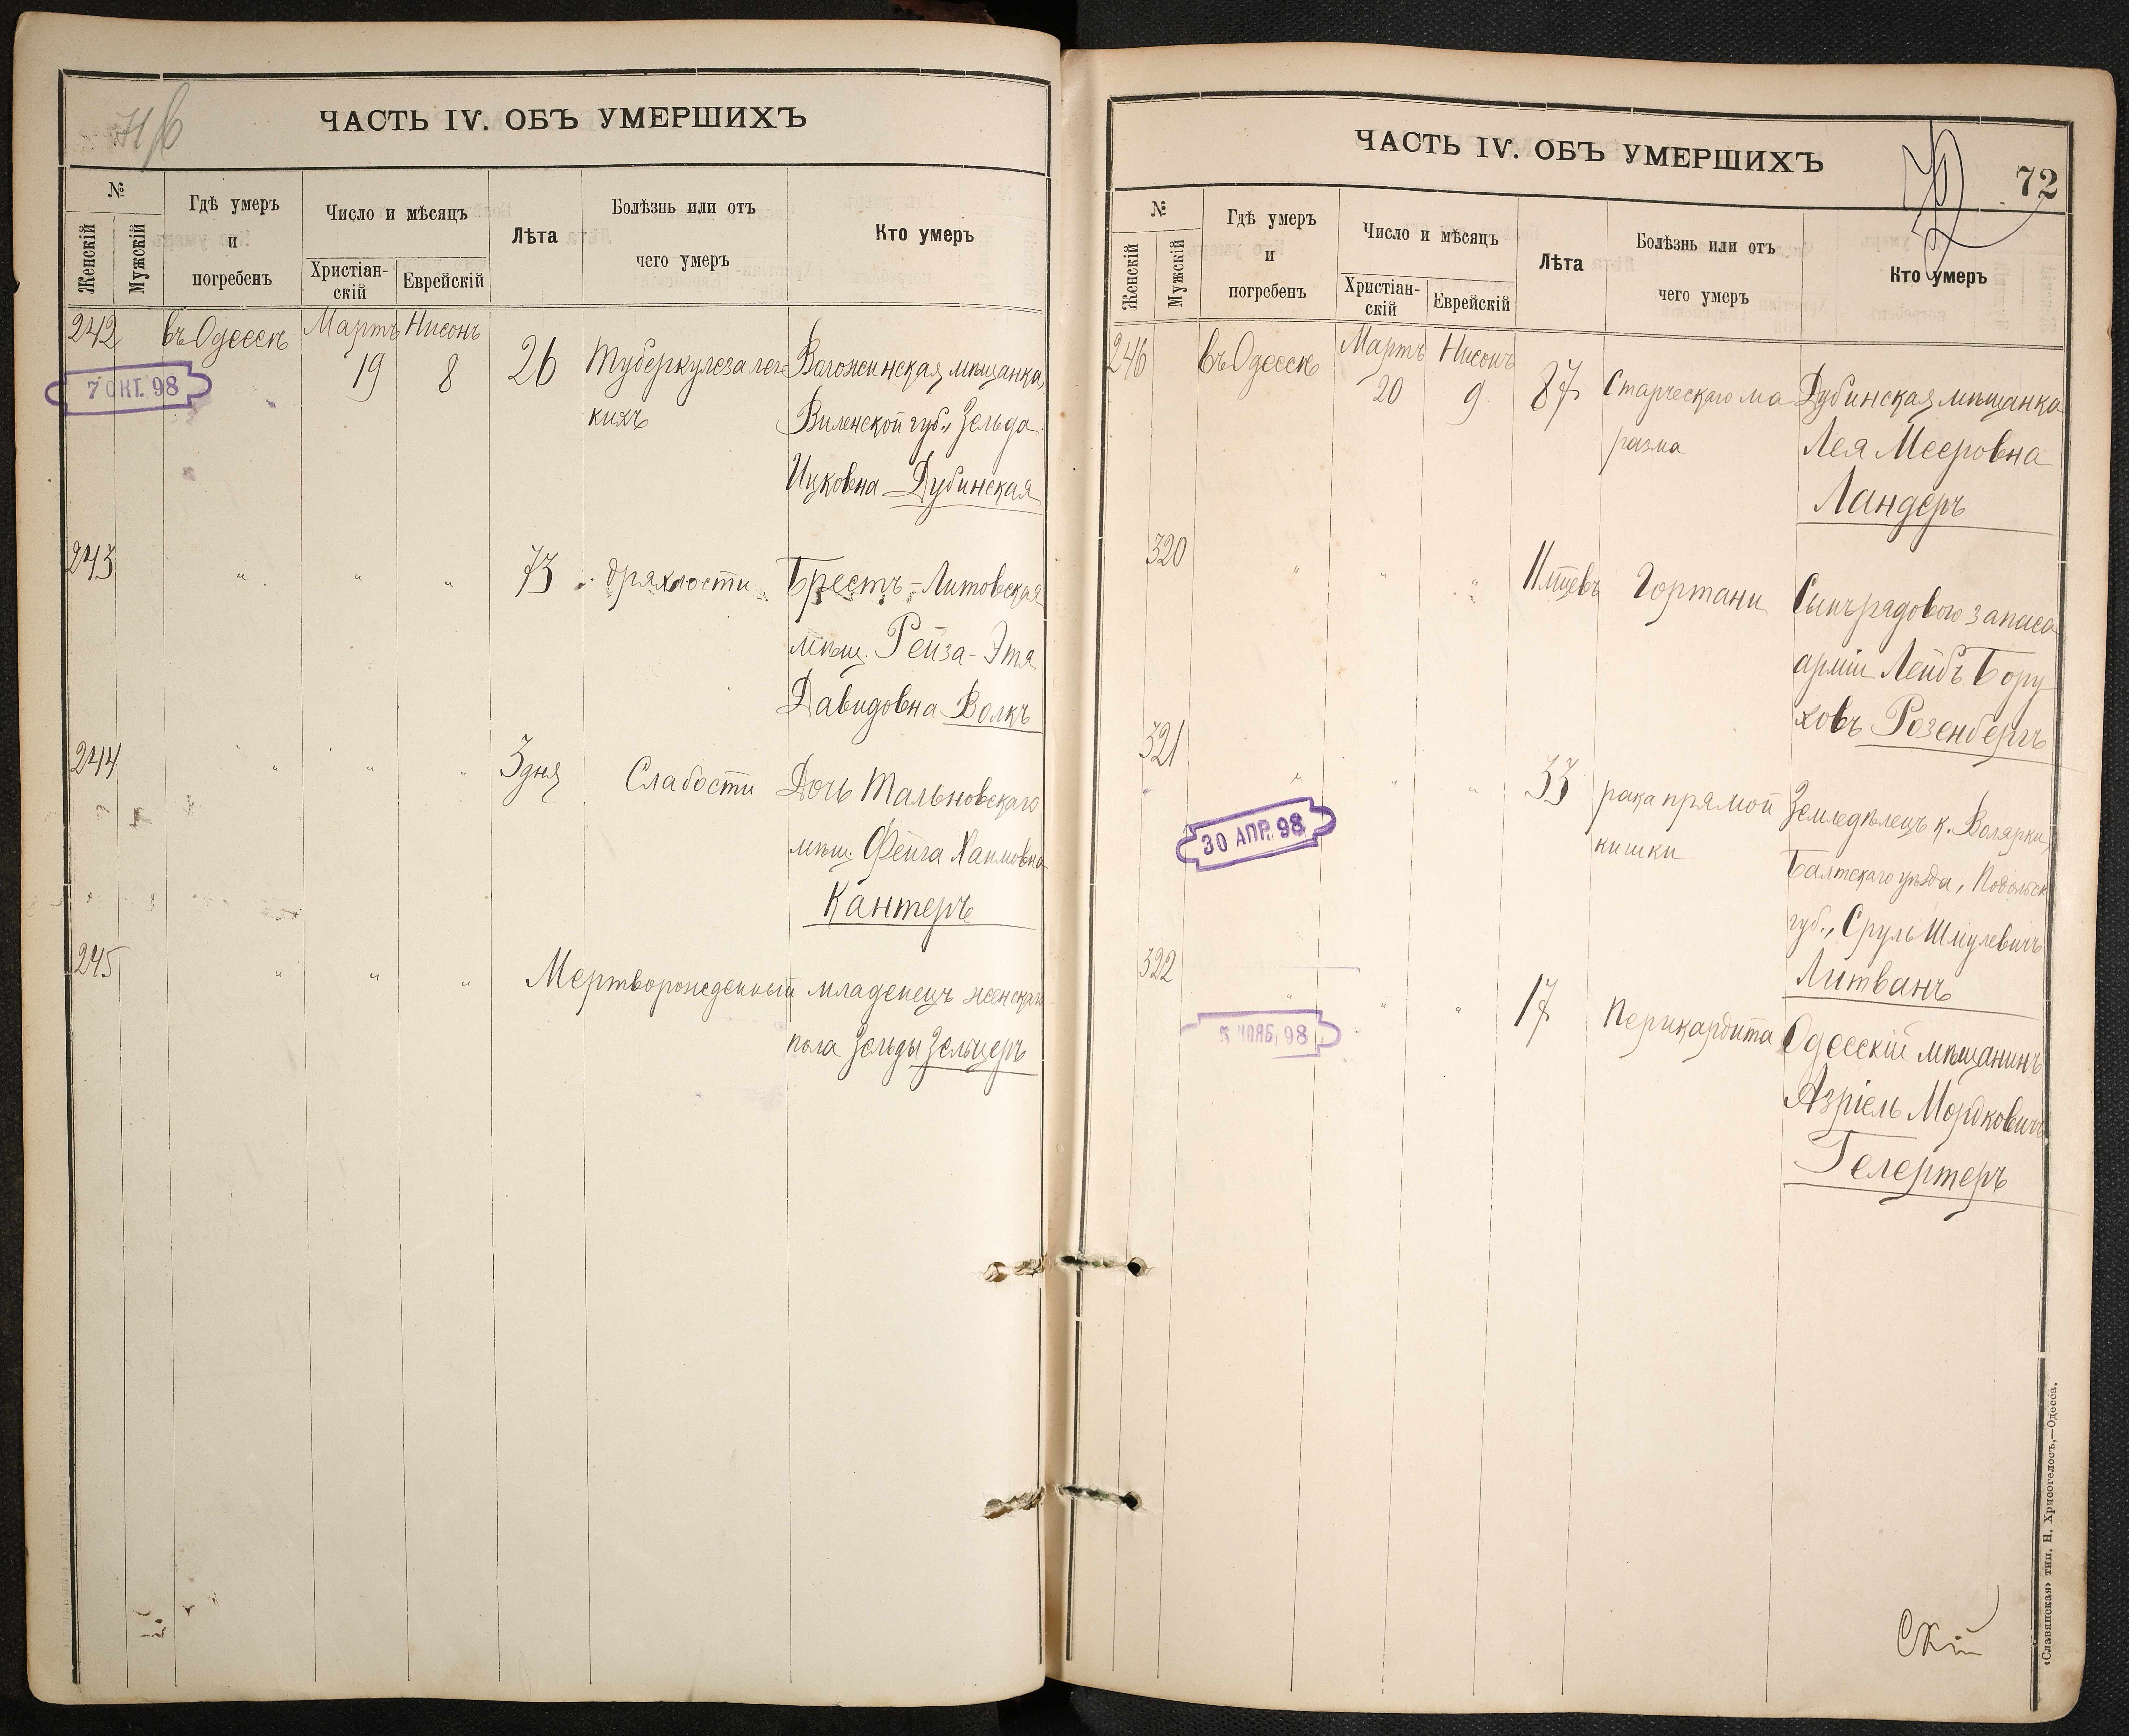 ЧАСТЬ IV. ОБЪ УМЕРШИХЪ
№
Женскій
Мужскій
Гдѣ умеръ
и
погребенъ
Число и мѣсяцъ
Христіан-
скій
Еврейскій
Лѣта
Болѣзнь или отъ
чего умеръ
Кто умеръ
242 въ Одессѣ Мартъ Нисонъ
19 8 26 Туберкулеза лег- Воложинская мѣщанка,
7 ОКТ. 98
кихъ Виленской губ., Зельда
Ицковна Дубинская
243 " " " 73 дряхлости Брестъ-Литовская
мѣщ. Рейза-Этя
Давидовна Волкъ
244 " " " 3 дня Слабости Дочь Тальновскаго
мѣщ. Фейга Хаимовна
Кантеръ
245 " " " Мертворожденный младенецъ женскаго
пола Зельды Зельцеръ
ЧАСТЬ IV. ОБЪ УМЕРШИХЪ
72
№
Женскій
Мужскій
Гдѣ умеръ
и
погребенъ
Число и мѣсяцъ
Христіан-
скій
Еврейскій
Лѣта
Болѣзнь или отъ
чего умеръ
Кто умеръ
246 въ Одессѣ Мартъ Нисонъ
20 9 87 Старческаго ма Дубинская мѣщанка
разма Лея Мееровна
Ландеръ
320 " " " 11 мцевъ Гортани Сынъ рядового запаса
арміи Лейбъ Бору
ховъ Розенбергъ
321 " " " 33 рака прямой Земледѣлецъ к. Волярки,
30 АПР. 98
кишки Балтскаго уѣзда, Подольск
губ., Сруль Шмулевичъ
Литванъ
322 " " " 17 Перикардита Одесскій мѣщанинъ
Азріель Мордковичъ
Гелертеръ
скій
«Славянская» тип. Н. Хрисогелосъ,—Одесса.